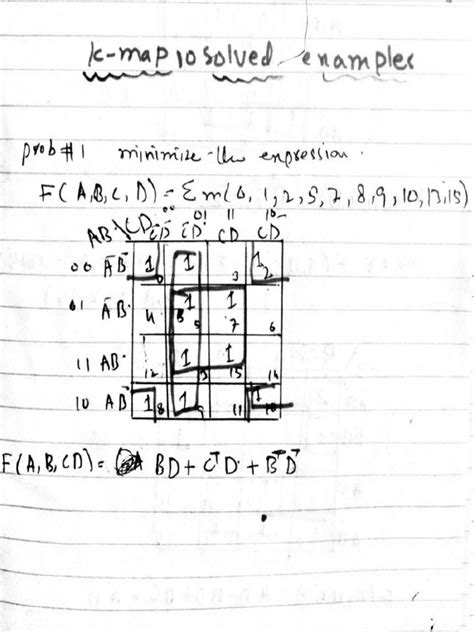 K-map 10 solved examples
prob #1 minimize the expression.
F(A,B,C,D) = Σm(0, 1, 2, 5, 7, 8, 9, 10, 13, 15)
00 01 11 10
AB\CD C̅D̅ C̅D CD CD̅
00 A̅B̅ 1 0 1 3 1 2
01 A̅B 4 1 5 1 7 6
11 AB 12 1 13 1 15 14
10 AB̅ 1 8 1 9 11 1 10
F(A,B,CD) = BD + C̅D + B̅D̅